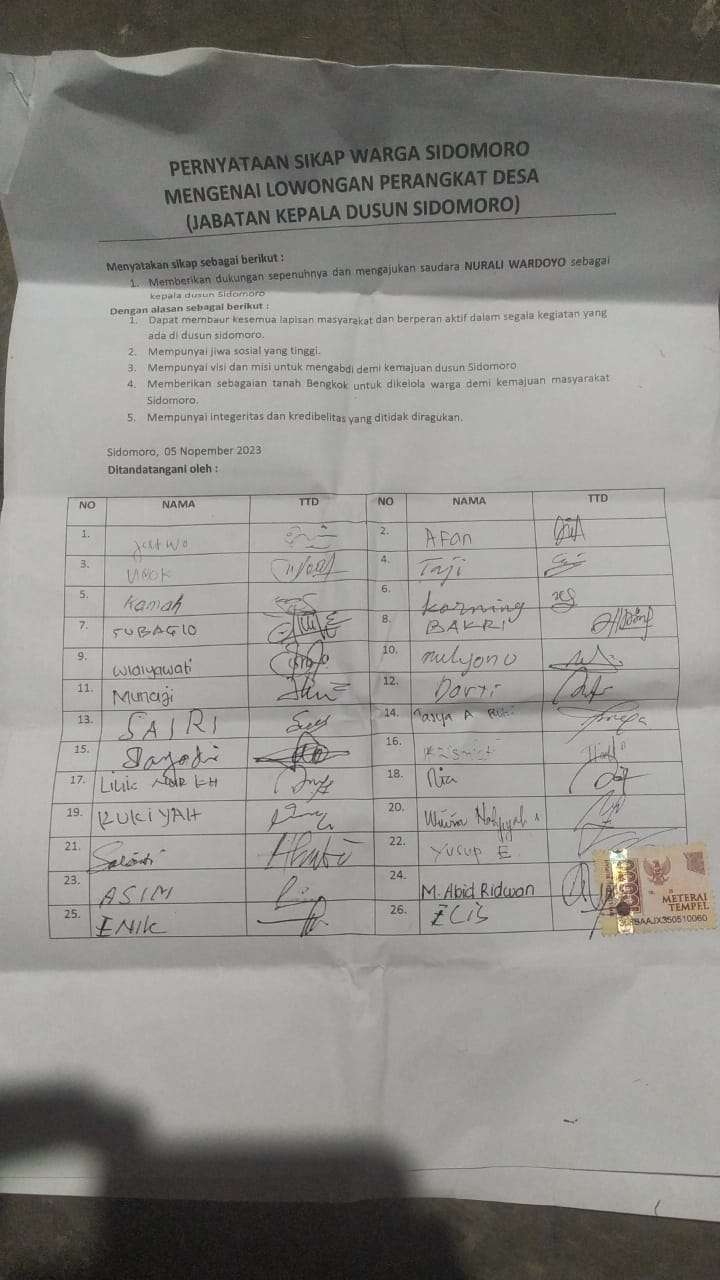 PERNYATAAN SIKAP WARGA SIDOMORO
MENGENAI LOWONGAN PERANGKAT DESA
(JABATAN KEPALA DUSUN SIDOMORO)
Menyatakan sikap sebagai berikut :
1. Memberikan dukungan sepenuhnya dan mengajukan saudara NURALI WARDOYO sebagai
kepala dusun Sidomoro
Dengan alasan sebagai berikut :
1. Dapat membaur kesemua lapisan masyarakat dan berperan aktif dalam segala kegiatan yang
ada di dusun sidomoro.
2. Mempunyai jiwa sosial yang tinggi.
3. Mempunyai visi dan misi untuk mengabdi demi kemajuan dusun Sidomoro
4. Memberikan sebagaian tanah Bengkok untuk dikelola warga demi kemajuan masyarakat
Sidomoro.
5. Mempunyai integeritas dan kredibelitas yang ditidak diragukan.
Sidomoro, 05 Nopember 2023
Ditandatangani oleh :
NO NAMA TTD NO NAMA TTD
1. 2. AFan
3. 4. Taji
5. Kaniah 6. Karning
7. SUBAGIO 8. BAKRI
9. Widiyawati 10. Mulyono
11. Munaji 12. Darti
13. SAIRI 14. Tasya A
15. 16.
17. Lilik NUR KH 18. Nia
19. RUKIYAH 20.
21. 22. Yusup E
23. ASIM 24. M. Abid Ridwan
25. ENIK 26. ECIS
10000
METERAI
TEMPEL